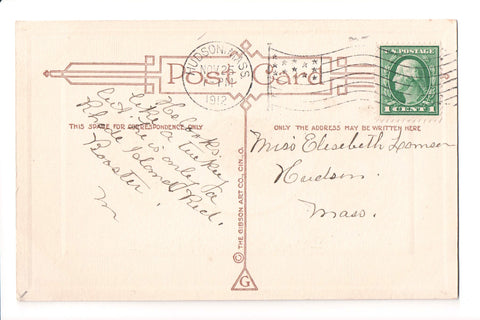 HUDSON MASS.
NOV 25
1912
U.S. POSTAGE
1 CENT 1
Post Card
THIS SPACE FOR CORRESPONDENCE ONLY
ONLY THE ADDRESS MAY BE WRITTEN HERE
like a turkey
but he is only a
Rhode Island Red
Rooster.
M
Miss Elizabeth
Hudson.
Mass.
© THE GIBSON ART CO., CIN., O.
G